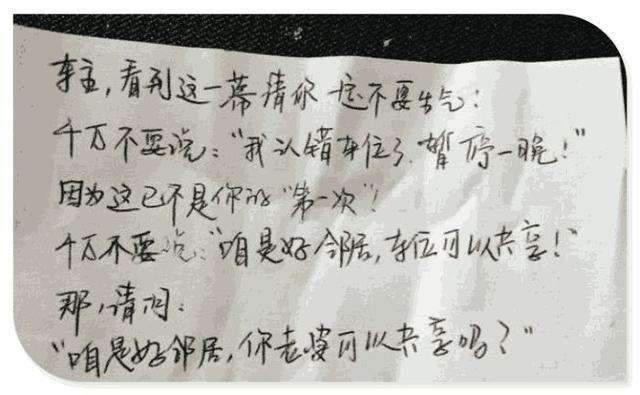 车主，看到这一幕请你一定不要生气：
千万不要说：“我认错车位了.暂停一晚！”
因为这已不是你的“第一次”！
千万不要说：“咱是好邻居，车位可以共享！”
那，请问：
“咱是好邻居，你老婆可以共享吗？”